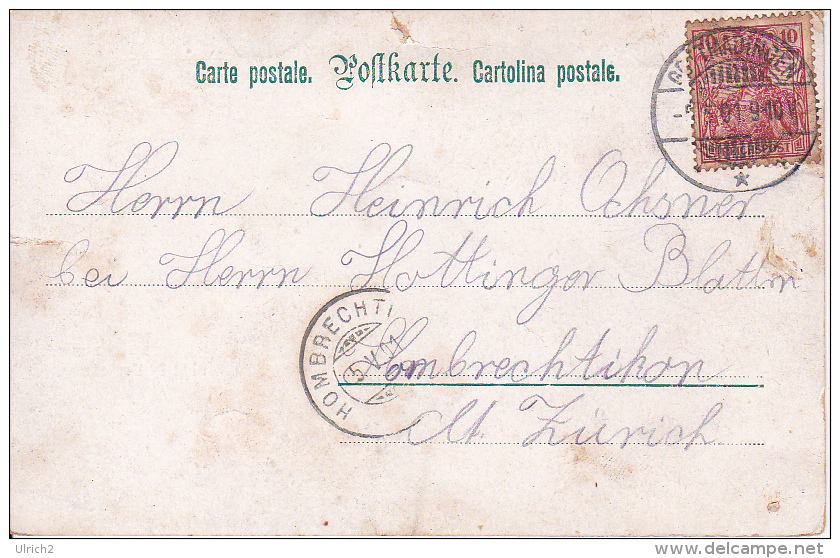 Carte postale. Postkarte. Cartolina postale.
10 10
REICHSPOST
01. 9-10V
Herrn Heinrich Ochsner
bei Herrn Hottinger Blattm
Hombrechtikon
Kt. Zürich.
HOMBRECHTI
5 V 01
Ulrich2
www.delcampe.net